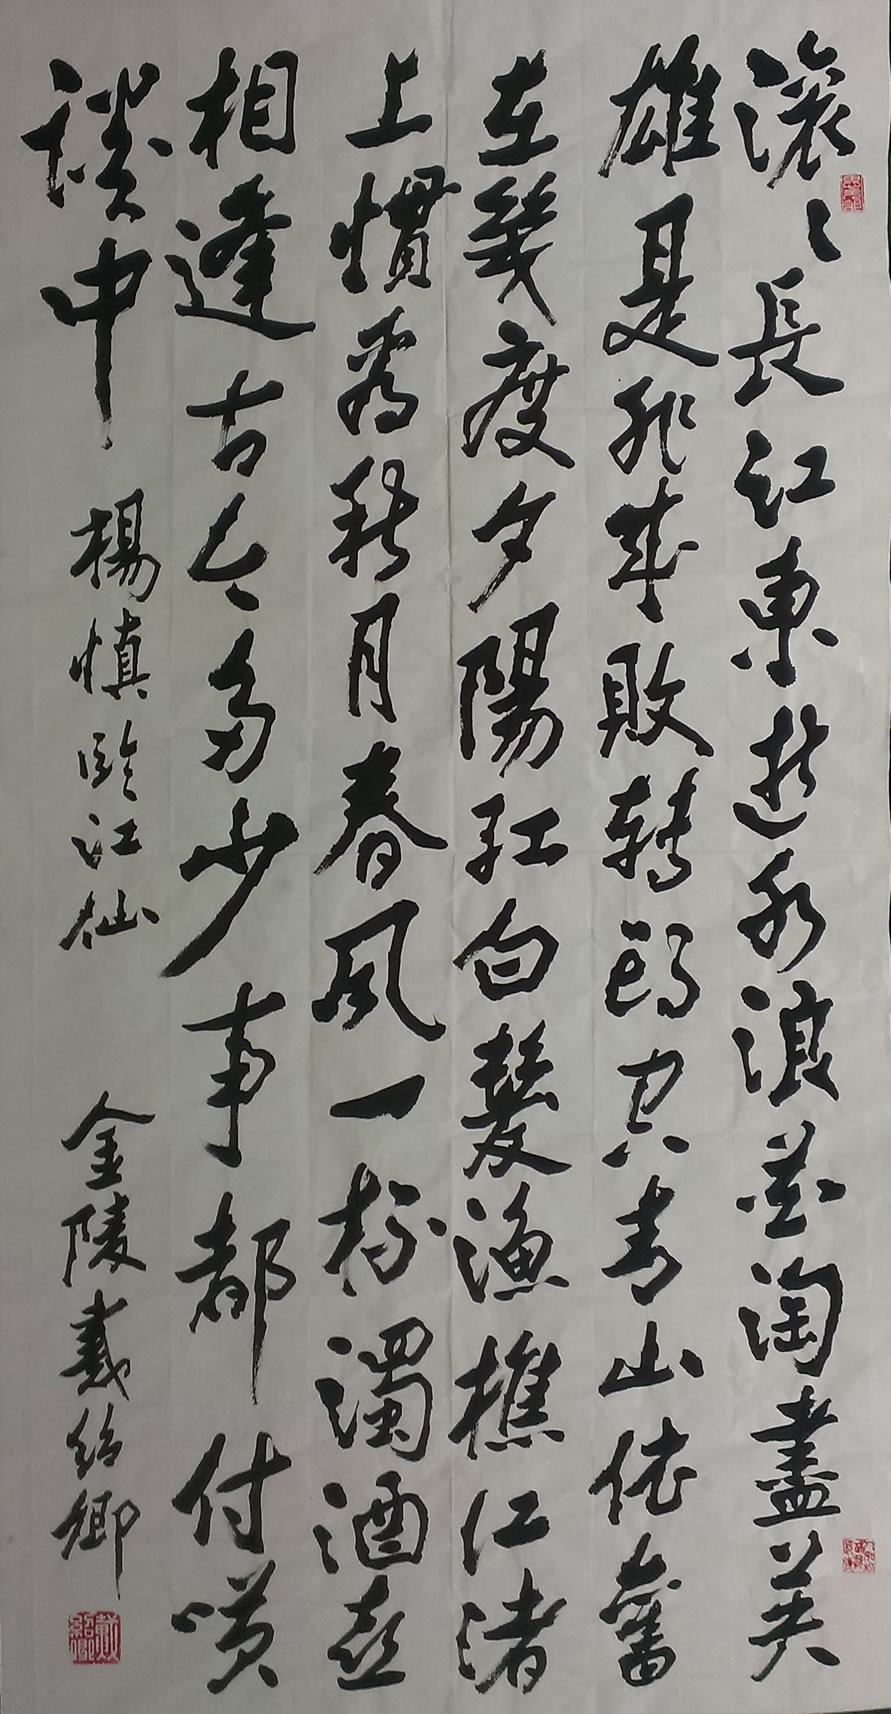 滚〻長江東逝水浪花淘盡英
雄是非成敗轉頭空青山依舊
在幾度夕陽紅白髮漁樵江渚
上慣看秋月春風一杯濁酒喜
相逢古今多少事都付咲
談中 楊慎臨江仙 金陵戴紹卿
戴紹卿